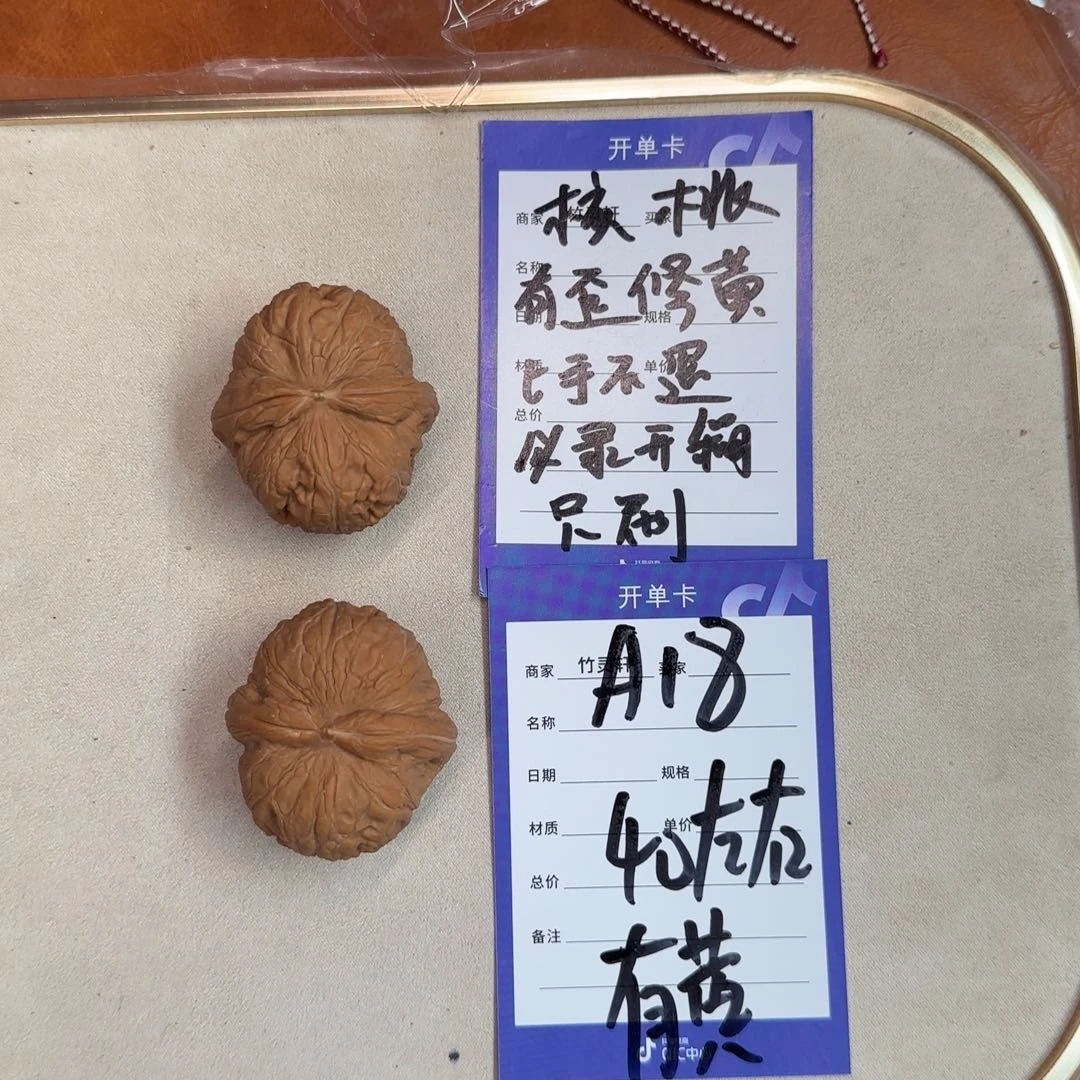 开单卡
商家 买家
核桃
名称
有歪修黄
日期 规格
材质 单价
上手不退
总价
必录开箱
只刷
开单卡
A18
商家 竹灵轩 买家
名称
日期 规格
40左右
材质 单价
总价
备注
有黄
QIC中心